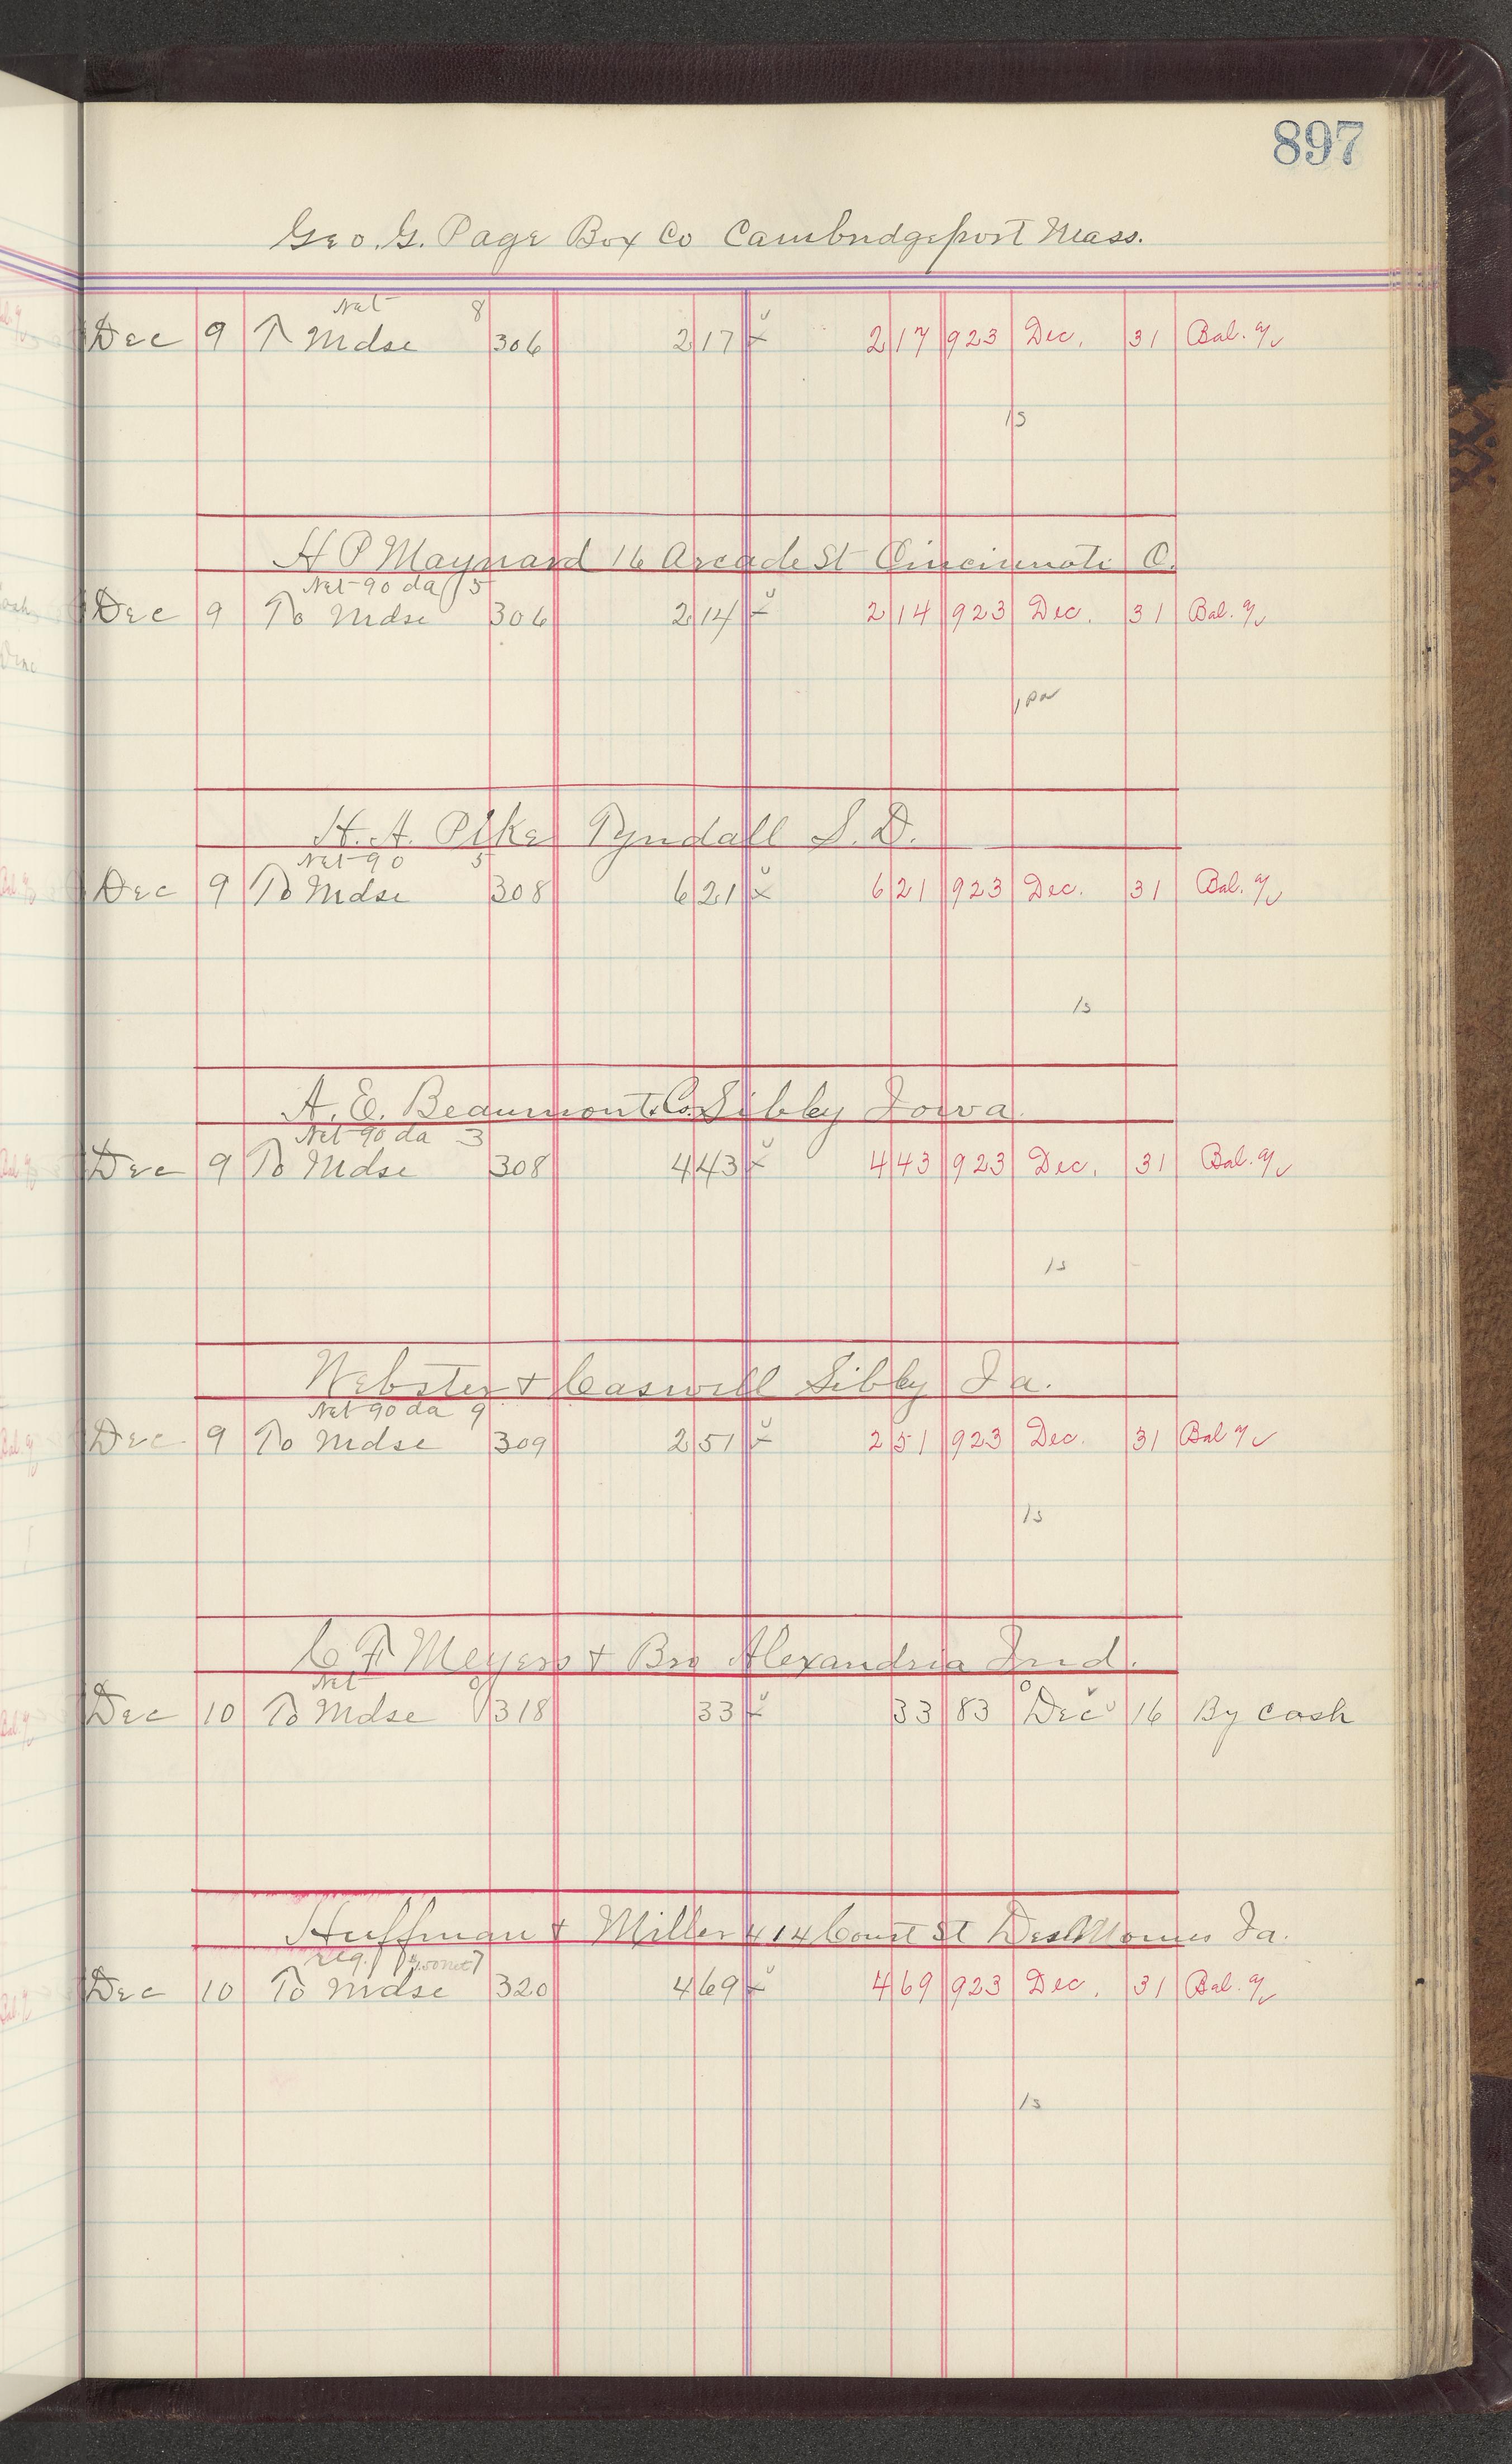 897
Geo. G. Page Box Co Cambridgeport Mass.
Net 8
Dec 9 To Mdse 306 2 17 2 17 923 Dec. 31 Bal. 
1s
H P Maynard 16 Arcade St Cincinnati O.
Net 90 da 5
Dec 9 To Mdse 306 2 14 2 14 923 Dec. 31 Bal.
H. A. Pike Tyndall S. D.
Net 90 5
Dec 9 To Mdse 308 6 21 6 21 923 Dec. 31 Bal.
1s
A. E. Beaumont & Co. Sibley Iowa
Net 90 da 3
Dec 9 To Mdse 308 4 43 4 43 923 Dec. 31 Bal.
1s
Webster & Caswell Sibley Ia.
Net 90 da 9
Dec 9 To Mdse 309 2 51 2 51 923 Dec. 31 Bal
1s
C F Meyers & Bro Alexandria Ind.
Net
Dec 10 To Mdse 318 33 33 83 Dec 16 By cash
Huffman & Miller 414 Court St Des Moines Ia.
reg. 7
Dec 10 To Mdse 320 4 69 4 69 923 Dec. 31 Bal.
1s